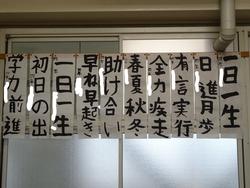 一日一生
日進月歩
有言実行
全力疾走
春夏秋冬
助け合い
早ね早起き
一日一生
初日の出
学力前進